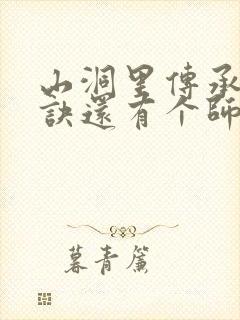 山洞里傳承
訣還有个師
暮青簾